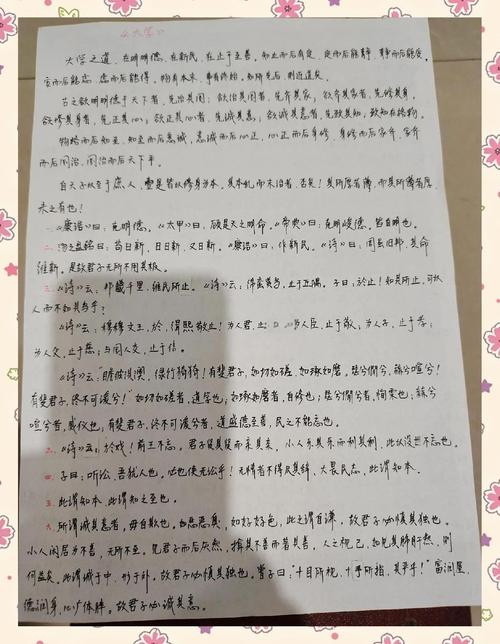 《大学》
大学之道，在明明德，在新民，在止于至善。知止而后有定，定而后能静，静而后能安，
安而后能虑，虑而后能得。物有本末，事有终始，知所先后，则近道矣。
古之欲明明德于天下者，先治其国；欲治其国者，先齐其家；欲齐其家者，先修其身；
欲修其身者，先正其心；欲正其心者，先诚其意；欲诚其意者，先致其知；致知在格物。
物格而后知至，知至而后意诚，意诚而后心正，心正而后身修，身修而后家齐，家齐
而后国治，国治而后天下平。
自天子以至于庶人，壹是皆以修身为本。其本乱而末治者，否矣！其所厚者薄，而其所薄者厚，
未之有也！
一、《康诰》曰：克明德。《太甲》曰：顾是天之明命。《帝典》曰：克明峻德。皆自明也。
二、汤之盘铭曰：苟日新，日日新，又日新。《康诰》曰：作新民。《诗》曰：周虽旧邦，其命
维新。是故君子无所不用其极。
三、《诗》云：邦畿千里，维民所止。《诗》云：缗蛮黄鸟，止于丘隅。子曰：於止！知其所止，可以
人而不如其鸟乎？
《诗》云：穆穆文王，於，缉熙敬止！为人君，止于仁；为人臣，止于敬；为人子，止于孝；
为人父，止于慈；与国人交，止于信。
《诗》云："瞻彼淇澳，绿竹猗猗！有斐君子，如切如磋，如琢如磨，瑟兮僩兮，赫兮喧兮！
有斐君子，终不可諠兮！"如切如磋者，道学也；如琢如磨者，自修也；瑟兮僩兮者，恂栗也；赫兮
喧兮者，威仪也；有斐君子，终不可諠兮者，道盛德至善，民之不能忘也。
《诗》云：於戏！前王不忘。君子贤其贤而亲其亲，小人乐其乐而利其利，此以没世不忘也。
四、子曰：听讼，吾犹人也。必也使无讼乎！无情者不得尽其辞，大畏民志，此谓知本。
五、此谓知本，此谓知之至也。
所谓诚其意者，毋自欺也，如恶恶臭，如好好色，此之谓自谦，故君子必慎其独也。
小人闲居为不善，无所不至。见君子而后厌然，揜其不善而著其善，人之视己，如见其肺肝然，则
何益矣。此谓诚于中，形于外。故君子必慎其独也。曾子曰："十目所视，十手所指，其严乎！"富润屋，
德润身，心广体胖。故君子必诚其意。